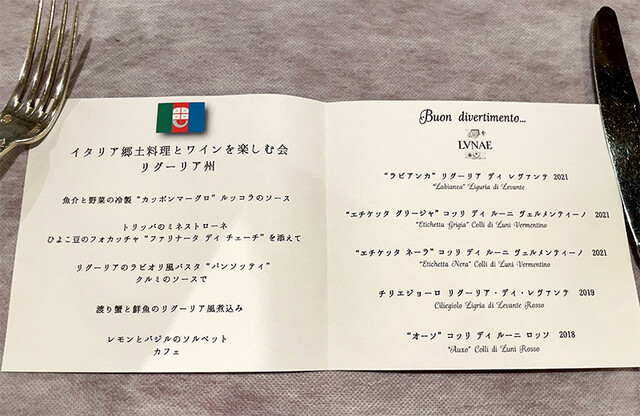 イタリア郷土料理とワインを楽しむ会
リグーリア州
魚介と野菜の冷製 “カッポンマーグロ” ルッコラのソース
トリッパのミネストローネ
ひよこ豆のフォカッチャ “ファリナータ ディ チェーチ” を添えて
リグーリアのラビオリ風パスタ “パンソッティ”
クルミのソースで
渡り蟹と鮮魚のリグーリア風煮込み
レモンとバジルのソルベット
カフェ
Buon divertimento...
LVNAE
“ラビアンカ” リグーリア ディ レヴァンテ 2021
“Labianca” Liguria di Levante
“エチケッタ グリージャ” コッリ ディ ルーニ ヴェルメンティーノ 2021
“Etichetta Grigia” Colli di Luni Vermentino
“エチケッタ ネーラ” コッリ ディ ルーニ ヴェルメンティーノ 2021
“Etichetta Nera” Colli di Luni Vermentino
チリエジョーロ リグーリア・ディ・レヴァンテ 2019
Ciliegiolo Ligria di Levante Rosso
“オーソ” コッリ ディ ルーニ ロッソ 2018
“Auxo” Colli di Luni Rosso